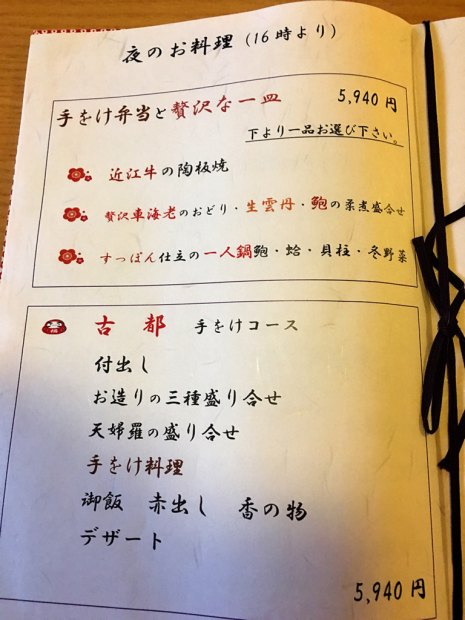 夜のお料理(16時より)
手をけ弁当と贅沢な一皿 5,940円
下より一品お選び下さい。
近江牛の陶板焼
贅沢車海老のおどり・生雲丹・鮑の柔煮盛合せ
すっぽん仕立の一人鍋鮑・蛤・貝柱・冬野菜
古都 手をけコース
付出し
お造りの三種盛り合せ
天婦羅の盛り合せ
手をけ料理
御飯 赤出し 香の物
デザート
5,940円